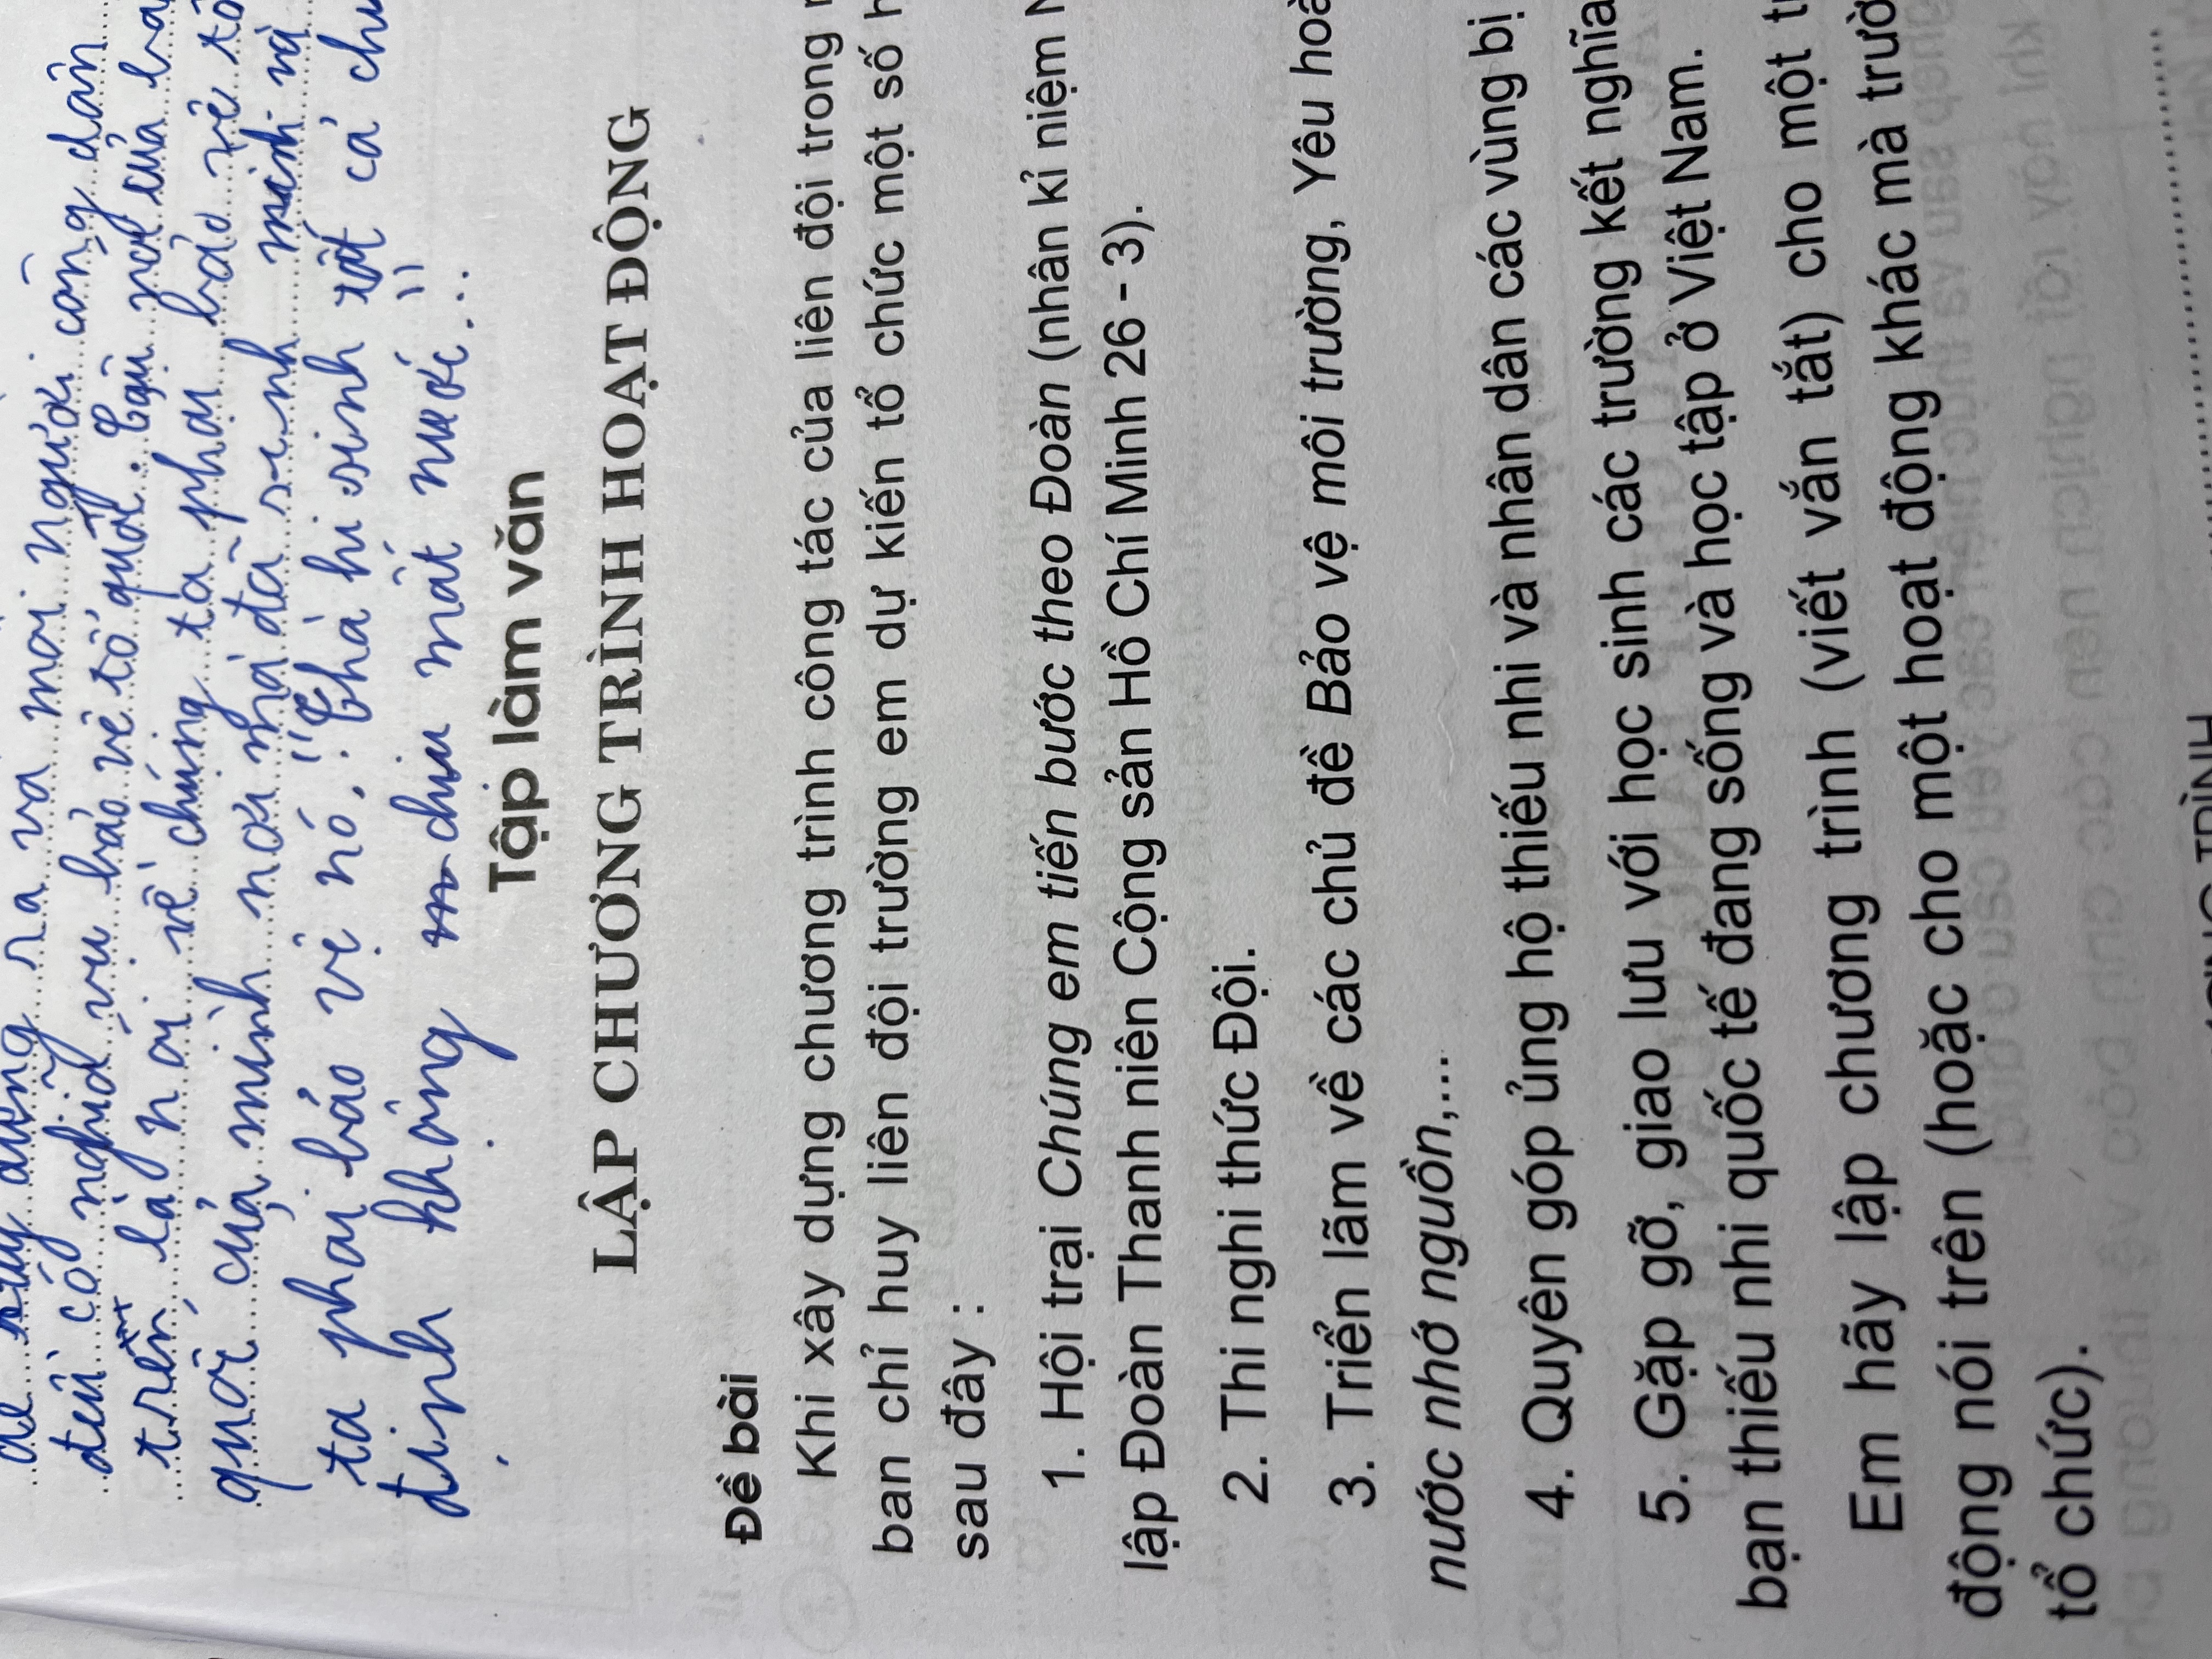 ra và mỗi người công dân
đều có nghĩa vụ bảo vệ tổ quốc. Câu nói của
trên là nói về chúng ta phải bảo vệ tổ
quốc của mình nơi mà đã sinh mình và
ta phải bảo vệ nó. "Thà hi sinh tất cả chứ
định không chịu mất nước..."
Tập làm văn
LẬP CHƯƠNG TRÌNH HOẠT ĐỘNG
Đề bài
Khi xây dựng chương trình công tác của liên đội trong
ban chỉ huy liên đội trường em dự kiến tổ chức một số
sau đây :
1. Hội trại Chúng em tiến bước theo Đoàn (nhân kỉ niệm
lập Đoàn Thanh niên Cộng sản Hồ Chí Minh 26 - 3).
2. Thi nghi thức Đội.
3. Triển lãm về các chủ đề Bảo vệ môi trường, Yêu
nước nhớ nguồn,...
4. Quyên góp ủng hộ thiếu nhi và nhân dân các vùng bị
5. Gặp gỡ, giao lưu với học sinh các trường kết nghĩa
bạn thiếu nhi quốc tế đang sống và học tập ở Việt Nam.
Em hãy lập chương trình (viết vắn tắt) cho một
động nói trên (hoặc cho một hoạt động khác mà
tổ chức).